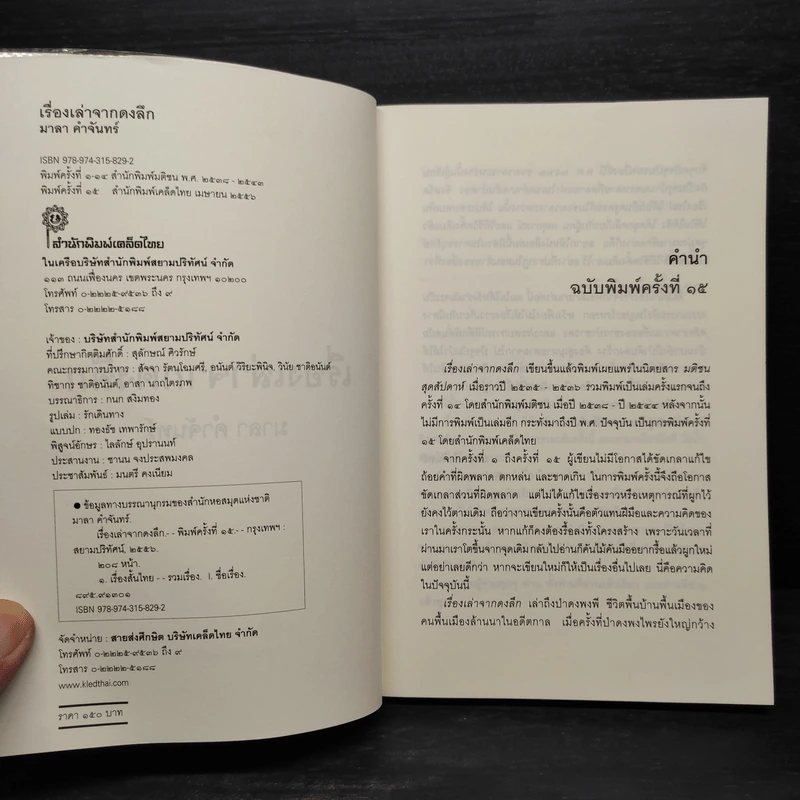 เรื่องเล่าจากดงลึก
มาลา คำจันทร์
ISBN 978-974-315-829-2
พิมพ์ครั้งที่ ๑-๑๔ สำนักพิมพ์มติชน พ.ศ. ๒๕๓๘ - ๒๕๔๓
พิมพ์ครั้งที่ ๑๕ สำนักพิมพ์เคล็ดไทย เมษายน ๒๕๕๖
สำนักพิมพ์เคล็ดไทย
ในเครือบริษัทสำนักพิมพ์สยามปริทัศน์ จำกัด
๑๑๓ ถนนเฟื่องนคร เขตพระนคร กรุงเทพฯ ๑๐๒๐๐
โทรศัพท์ ๐-๒๒๒๕-๙๕๓๖ ถึง ๙
โทรสาร ๐-๒๒๒๒-๕๑๘๘
เจ้าของ : บริษัทสำนักพิมพ์สยามปริทัศน์ จำกัด
ที่ปรึกษากิตติมศักดิ์ : สุลักษณ์ ศิวรักษ์
คณะกรรมการบริหาร : สัจจา รัตนโฉมศรี, อนันต์ วิริยะพินิจ, วินัย ชาติอนันต์
ทิชากร ชาติอนันต์, อาสา นาถไตรภพ
บรรณาธิการ : กนก สงิมทอง
รูปเล่ม : รักเดินทาง
แบบปก : ทองธัช เทพารักษ์
พิสูจน์อักษร : ไลลักษ์ อุปรานนท์
ประสานงาน : ชานน จงประสพมงคล
ประชาสัมพันธ์ : มนตรี คงเนียม
● ข้อมูลทางบรรณานุกรมของสำนักหอสมุดแห่งชาติ
มาลา คำจันทร์.
เรื่องเล่าจากดงลึก.- - พิมพ์ครั้งที่ ๑๕.- - กรุงเทพฯ :
สยามปริทัศน์, ๒๕๕๖.
๒๐๘ หน้า.
๑. เรื่องสั้นไทย - - รวมเรื่อง. I. ชื่อเรื่อง.
๘๙๕.๙๑๓๐๑
ISBN 978-974-315-829-2
จัดจำหน่าย : สายส่งศึกษิต บริษัทเคล็ดไทย จำกัด
โทรศัพท์ ๐-๒๒๒๕-๙๕๓๖ ถึง ๙
โทรสาร ๐-๒๒๒๒-๕๑๘๘
www.kledthai.com
ราคา ๑๕๐ บาท
คำนำ
ฉบับพิมพ์ครั้งที่ ๑๕
เรื่องเล่าจากดงลึก เขียนขึ้นแล้วพิมพ์เผยแพร่ในนิตยสาร มติชน
สุดสัปดาห์ เมื่อราวปี ๒๕๓๕ - ๒๕๓๖ รวมพิมพ์เป็นเล่มครั้งแรกจนถึง
ครั้งที่ ๑๔ โดยสำนักพิมพ์มติชน เมื่อปี ๒๕๓๘ - ปี ๒๕๔๔ หลังจากนั้น
ไม่มีการพิมพ์เป็นเล่มอีก กระทั่งมาถึงปี พ.ศ. ปัจจุบัน เป็นการพิมพ์ครั้งที่
๑๕ โดยสำนักพิมพ์เคล็ดไทย
จากครั้งที่ ๑ ถึงครั้งที่ ๑๕ ผู้เขียนไม่มีโอกาสได้ขัดเกลาแก้ไข
ถ้อยคำที่ผิดพลาด ตกหล่น และขาดเกิน ในการพิมพ์ครั้งนี้จึงถือโอกาส
ขัดเกลาส่วนที่ผิดพลาด แต่ไม่ได้แก้ไขเรื่องราวหรือเหตุการณ์ที่ผูกไว้
ยังคงไว้ตามเดิม ถือว่างานเขียนครั้งนั้นคือตัวแทนฝีมือและความคิดของ
เราในครั้งกระนั้น หากแก้ก็คงต้องรื้อลงทั้งโครงสร้าง เพราะวันเวลาที่
ผ่านมาเราโตขึ้นจากจุดเดิม กลับไปอ่านก็คันไม้คันมืออยากรื้อแล้วผูกใหม่
แต่อย่าเลยดีกว่า หากจะเขียนใหม่ก็ให้เป็นเรื่องอื่นไปเลย นี่คือความคิด
ในปัจจุบันนี้
เรื่องเล่าจากดงลึก เล่าถึงป่าดงพงพี ชีวิตพื้นบ้านพื้นเมืองของ
คนพื้นเมืองล้านนาในอดีตกาล เมื่อครั้งที่ป่าดงพงไพรยังใหญ่กว้าง